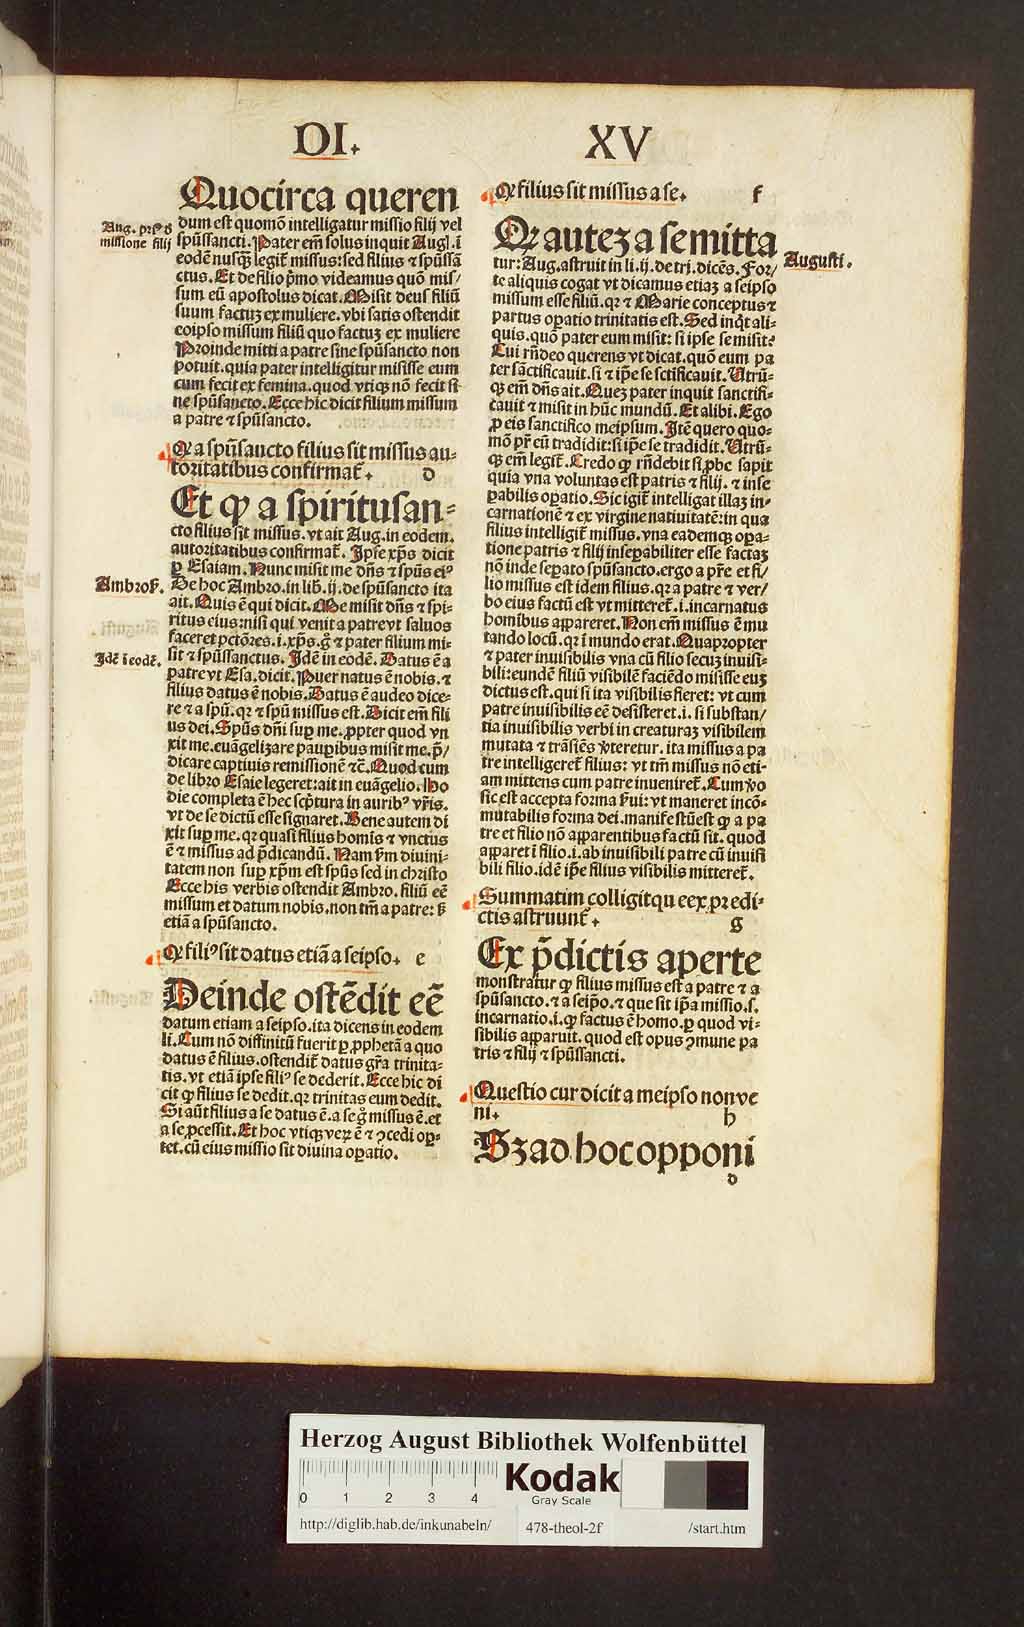 DI.
XV
Quocirca queren
dum est quomō intelligatur missio filij vel
spūssancti. Pater em̄ solus inquit Augl. ī
eodē nusqȝ legit᷑ missus: sed filius ⁊ spūssā
ctus. Et de filio p̄mo videamus quō mis/
sum eū apostolus dicat. Misit deus filiū
suum factuȝ ex muliere. vbi satis ostendit
eoipso missum filiū quo factuȝ ex muliere
Proinde mitti a patre sine spūsancto non
potuit. quia pater intelligitur misisse eum
cum fecit ex femina. quod vtiqȝ nō fecit si-
ne spūsancto. Ecce hic dicit filium missum
a patre ⁊ spūsancto.
Aug. prīo d̄
missione filij
Qꝛ a spūsancto filius sit missus au-
toritatibus confirmat᷑. d
Et ꝙ a spiritusan-
cto filius sit missus. vt ait Aug. in eodem.
autoritatibus confirmat᷑. Ipse xp̄s dicit
ꝑ Esaiam. Nunc misit me dn̄s ⁊ spūs eiꝰ
De hoc Ambro. in lib̄. ij. de spūsancto ita
ait. Quis ē qui dicit. Me misit dn̄s ⁊ spi-
ritus eius: nisi qui venit a patre vt saluos
faceret pctōres. i. xp̄s. g̊ ⁊ pater filium mi-
sit ⁊ spūssanctus. Idē in eodē. Datus ē a
patre vt Esa. dicit. Puer natus ē nobis. ⁊
filius datus ē nobis. Datus ē audeo dice-
re ⁊ a spū. qꝛ ⁊ spū missus est. Dicit em̄ fili
us dei. Spūs dn̄i suꝑ me. ꝓpter quod vn
xit me. euāgelizare pauꝑibus misit me. p̄/
dicare captiuis remissionē ⁊c̄. Quod cum
de libro Esaie legeret: ait in euāgelio. Ho
die completa ē hec sc̄ptura in auribꝰ vr̄is.
vt de se dictū esse signaret. Bene autem di
xit suꝑ me. qꝛ quasi filius homīs ⁊ vnctus
ē ⁊ missus ad p̄dicandū. Nam ẜm diuini-
tatem non suꝑ xp̄m est spūs sed in christo
Ecce his verbis ostendit Ambro. filiū eē
missum et datum nobis. non tm̄ a patre: ß
etiā a spūsancto.
Ambros̄.
Idē i eodē.
Qꝛ filiꝰ sit datus etiā a seipso. e
Deinde ostēdit eē
datum etiam a seipso. ita dicens in eodem
li. Cum nō diffinitū fuerit ꝑ ꝓphetā a quo
datus ē filius. ostendit᷑ datus gr̄a trinita-
tis. vt etiā ipse filiꝰ se dederit. Ecce hic di
cit ꝙ filius se dedit. qꝛ trinitas eum dedit.
Si aūt filius a se datus ē. a se g̊ missus ē. et
a se ꝓcessit. Et hoc vtiqȝ veꝝ ē ⁊ ꝯcedi opꝫ-
tet. cū eius missio sit diuina oꝑatio.
Qꝛ filius sit missus a se. f
Qꝛ auteȝ a se mitta
tur: Aug. astruit in li. ij. de tri. dicēs. For/
te aliquis cogat vt dicamus etiaȝ a seipso
missum esse filiū. qꝛ ⁊ Marie conceptus ⁊
partus oꝑatio trinitatis est. Sed inq̄t ali-
quis. quō pater eum misit: si ipse se misit?
Cui rn̄deo querens vt dicat. quō eum pa
ter sāctificauit. si ⁊ ip̄e se sctificauit. Vtrū-
qȝ em̄ dn̄s ait. Queȝ pater inquit sanctifi-
cauit ⁊ misit in hūc mundū. Et alibi. Ego
ꝓ eis sanctifico meipsum. Itē quero quo-
mō pr̄ eū tradidit: si ip̄e se tradidit. Vtrū-
qȝ em̄ legit᷑. Credo ꝙ rn̄debit si ꝓbe sapit
quia vna voluntas est patris ⁊ filij. ⁊ inse
ꝑabilis oꝑatio. Sic igit᷑ intelligat illaȝ in-
carnationē ⁊ ex virgine natiuitatē: in qua
filius intelligit᷑ missus. vna eademqȝ oꝑa-
tione patris ⁊ filij inseꝑabiliter esse factaȝ
nō inde seꝑato spūsancto. ergo a pr̄e et fi/
lio missus est idem filius. qꝛ a patre ⁊ ver/
bo eius factū est vt mitteret᷑. i. incarnatus
homibus appareret. Non em̄ missus ē mu
tando locū. qꝛ ī mundo erat. Quapropter
⁊ pater inuisibilis vna cū filio secuȝ inuisi-
bili: eundē filiū visibilē faciēdo misisse euȝ
dictus est. qui si ita visibilis fieret: vt cum
patre inuisibilis eē desisteret. i. si substan/
tia inuisibilis verbi in creaturaȝ visibilem
mutata ⁊ trāsiēs v̓teretur. ita missus a pa
tre intelligeret᷑ filius: vt tm̄ missus nō eti-
am mittens cum patre inueniret᷑. Cum v̓o
sic est accepta forma ẜui: vt maneret incō-
mutabilis forma dei. manifestū est ꝙ a pa
tre et filio nō apparentibus factū sit. quod
apparet ī filio. i. ab inuisibili patre cū inuisi
bili filio. idē ip̄e filius visibilis mitteret᷑.
Augusti.
Summatim colligit que ex predi-
ctis astruunt᷑. g
Ex p̄dictis aperte
monstratur ꝙ filius missus est a patre ⁊ a
spūsancto. ⁊ a seip̄o. ⁊ que sit ip̄a missio. s.
incarnatio. i. ꝙ factus ē homo. ꝑ quod vi-
sibilis apparuit. quod est opus ꝯmune pa
tris ⁊ filij ⁊ spūssancti.
Questio cur dicit a meipso non ve
ni. h
Sȝ ad hoc opponi
d
Herzog August Bibliothek Wolfenbüttel
0 1 2 3 4
Kodak
Gray Scale
http://diglib.hab.de/inkunabeln/
478-theol-2f
/start.htm